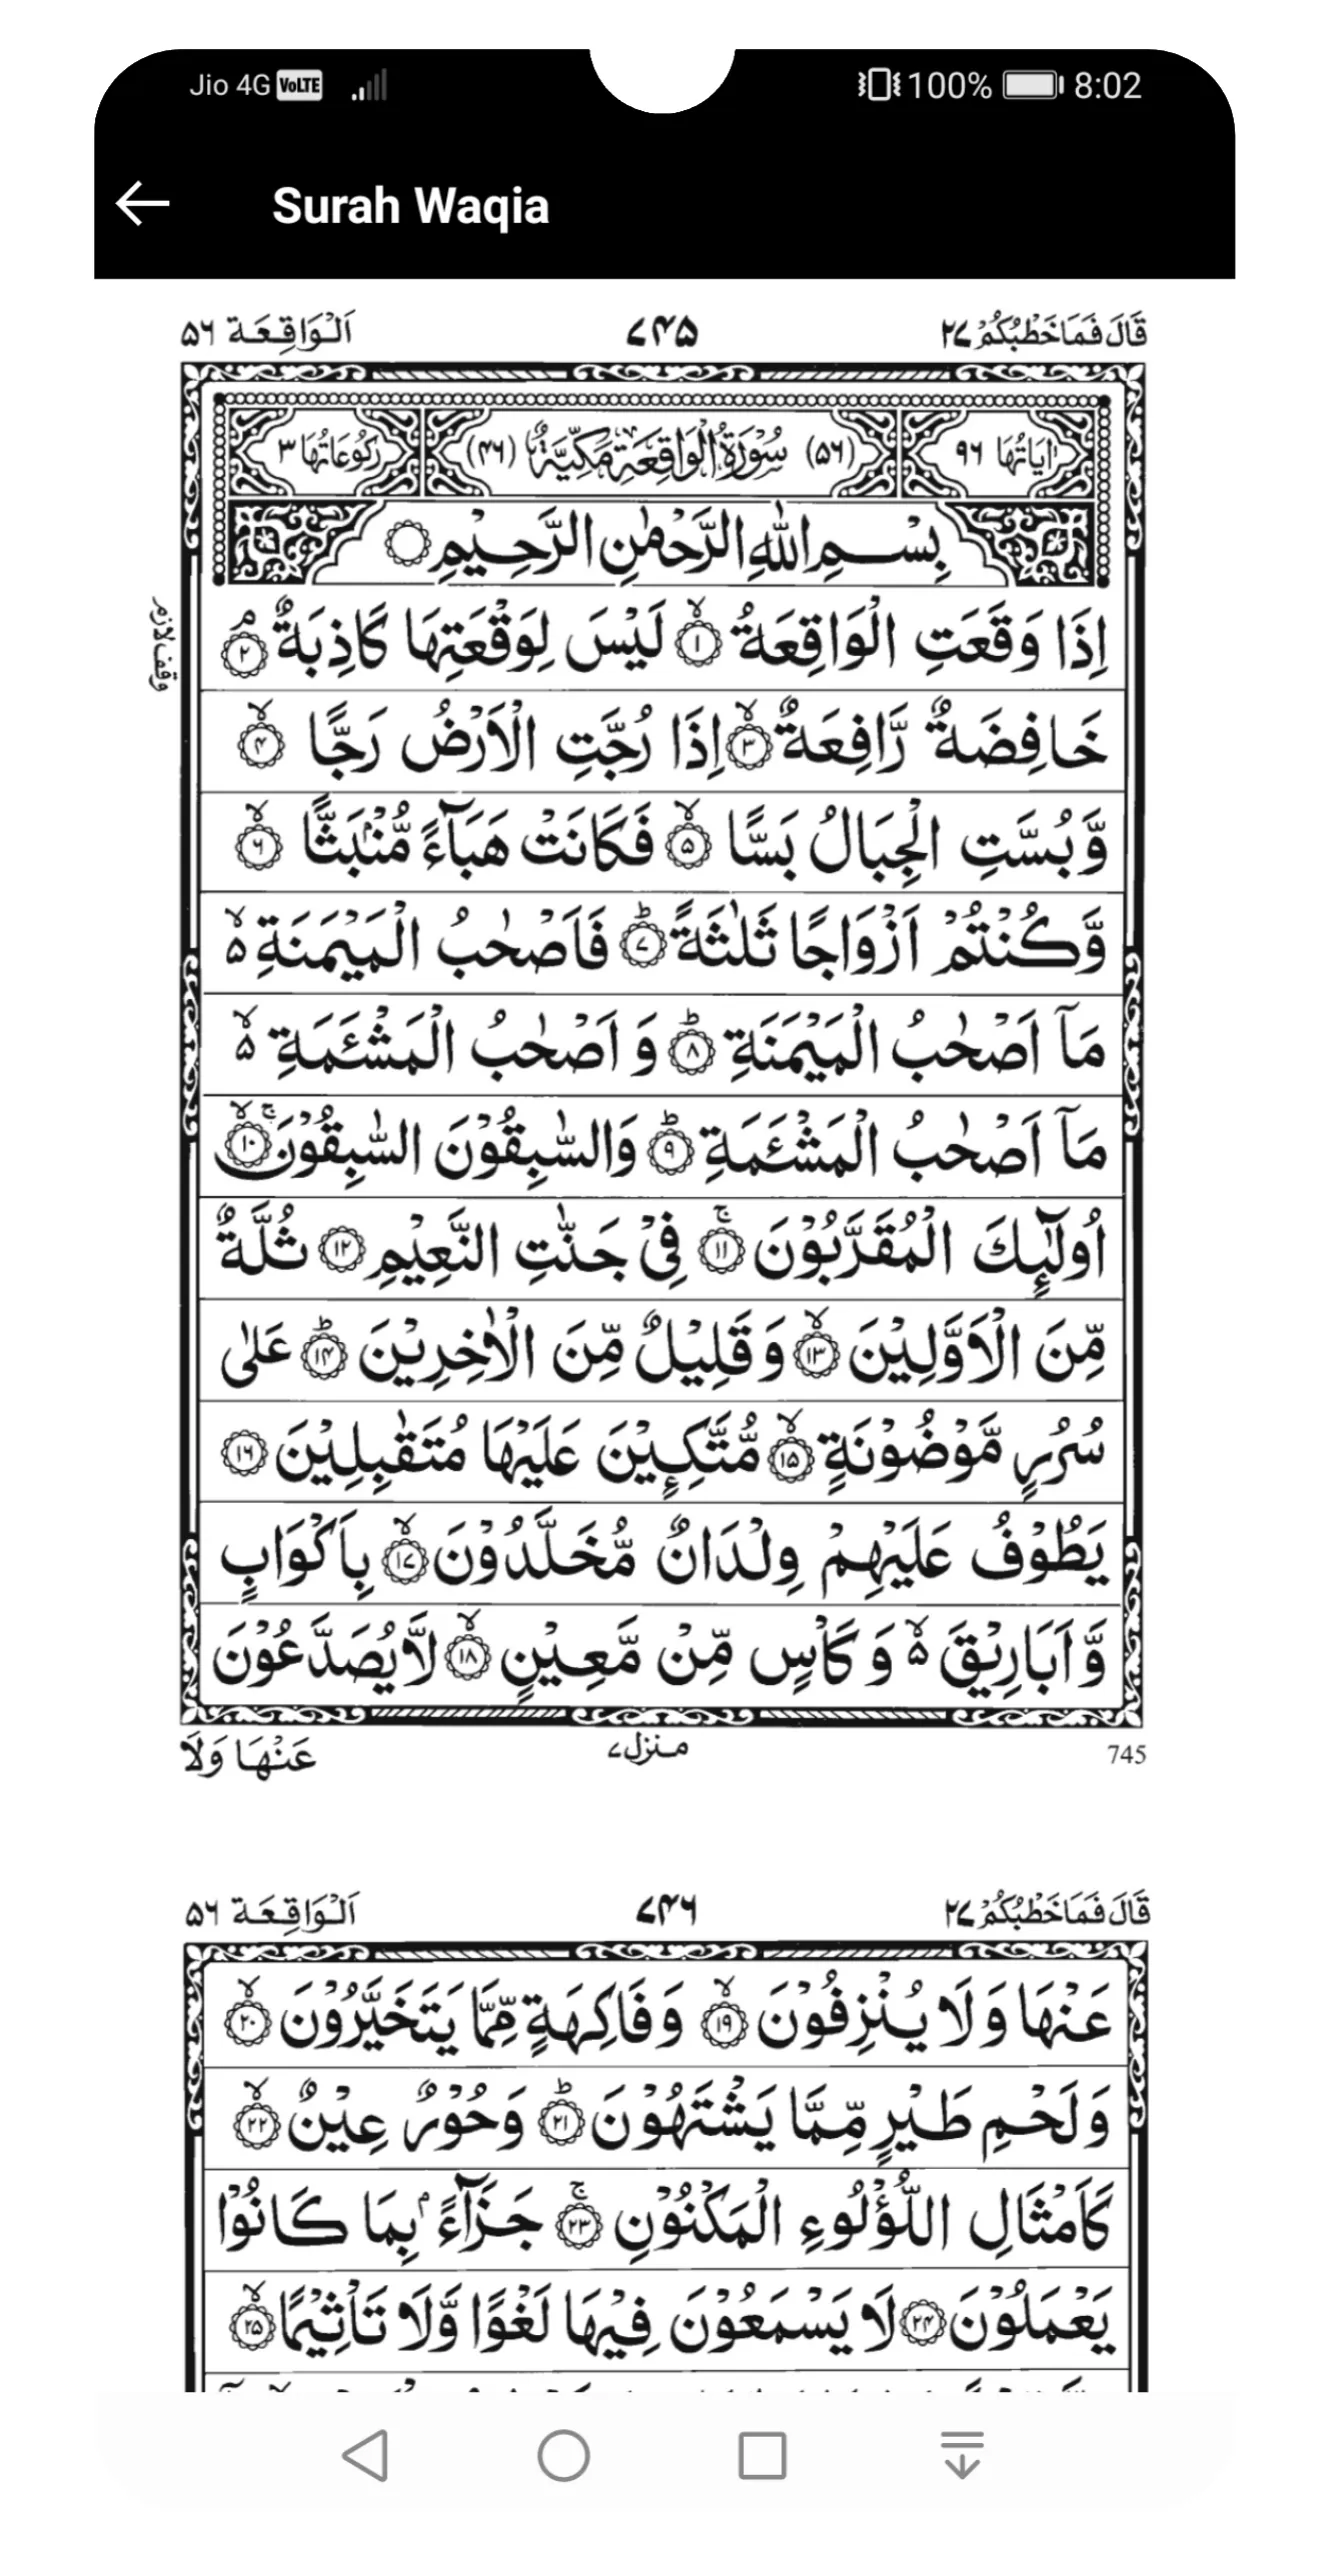 Jio 4G VoLTE 100% 8:02
Surah Waqia
قَالَ فَمَاخَطْبُكُمْ ٢٧ ٧٤٥ اَلْوَاقِعَة ٥٦
اٰيَاتُهَا ٩٦ (٥٦) سُوْرَةُ الْوَاقِعَةِ مَكِّيَّةٌ (٤٦) رُكُوْعَاتُهَا ٣
بِسْمِ اللهِ الرَّحْمٰنِ الرَّحِيْمِ
اِذَا وَقَعَتِ الْوَاقِعَةُ ۙ﴿١﴾ لَيْسَ لِوَقْعَتِهَا كَاذِبَةٌ ۘ﴿٢﴾
وقف لازم
خَافِضَةٌ رَّافِعَةٌ ۙ﴿٣﴾ اِذَا رُجَّتِ الْاَرْضُ رَجًّا ۙ﴿٤﴾
وَّبُسَّتِ الْجِبَالُ بَسًّا ۙ﴿٥﴾ فَكَانَتْ هَبَآءً مُّنْۢبَثًّا ۙ﴿٦﴾
وَّكُنْتُمْ اَزْوَاجًا ثَلٰثَةً ؕ﴿٧﴾ فَاَصْحٰبُ الْمَيْمَنَةِ ۙ۵
مَاۤ اَصْحٰبُ الْمَيْمَنَةِ ؕ﴿٨﴾ وَ اَصْحٰبُ الْمَشْـَٔمَةِ ۙ۵
مَاۤ اَصْحٰبُ الْمَشْـَٔمَةِ ؕ﴿٩﴾ وَالسّٰبِقُوْنَ السّٰبِقُوْنَ ۚۙ﴿١٠﴾
اُولٰٓئِكَ الْمُقَرَّبُوْنَ ۚ﴿١١﴾ فِيْ جَنّٰتِ النَّعِيْمِ ﴿١٢﴾ ثُلَّةٌ
مِّنَ الْاَوَّلِيْنَ ۙ﴿١٣﴾ وَقَلِيْلٌ مِّنَ الْاٰخِرِيْنَ ؕ﴿١٤﴾ عَلٰى
سُرُرٍ مَّوْضُوْنَةٍ ۙ﴿١٥﴾ مُّتَّكِـِٕيْنَ عَلَيْهَا مُتَقٰبِلِيْنَ ﴿١٦﴾
يَطُوْفُ عَلَيْهِمْ وِلْدَانٌ مُّخَلَّدُوْنَ ۙ﴿١٧﴾ بِاَكْوَابٍ
وَّاَبَارِيْقَ ۙ۵ وَكَاْسٍ مِّنْ مَّعِيْنٍ ۙ﴿١٨﴾ لَّا يُصَدَّعُوْنَ
745 منزل ٧ عَنْهَا وَلَا
قَالَ فَمَاخَطْبُكُمْ ٢٧ ٧٤٦ اَلْوَاقِعَة ٥٦
عَنْهَا وَلَا يُنْزِفُوْنَ ۙ﴿١٩﴾ وَفَاكِهَةٍ مِّمَّا يَتَخَيَّرُوْنَ ۙ﴿٢٠﴾
وَلَحْمِ طَيْرٍ مِّمَّا يَشْتَهُوْنَ ؕ﴿٢١﴾ وَحُوْرٌ عِيْنٌ ۙ﴿٢٢﴾
كَاَمْثَالِ اللُّؤْلُوءِ الْمَكْنُوْنِ ۚ﴿٢٣﴾ جَزَآءًۢ بِمَا كَانُوْا
يَعْمَلُوْنَ ﴿٢٤﴾ لَا يَسْمَعُوْنَ فِيْهَا لَغْوًا وَّلَا تَاْثِيْمًا ۙ﴿٢٥﴾